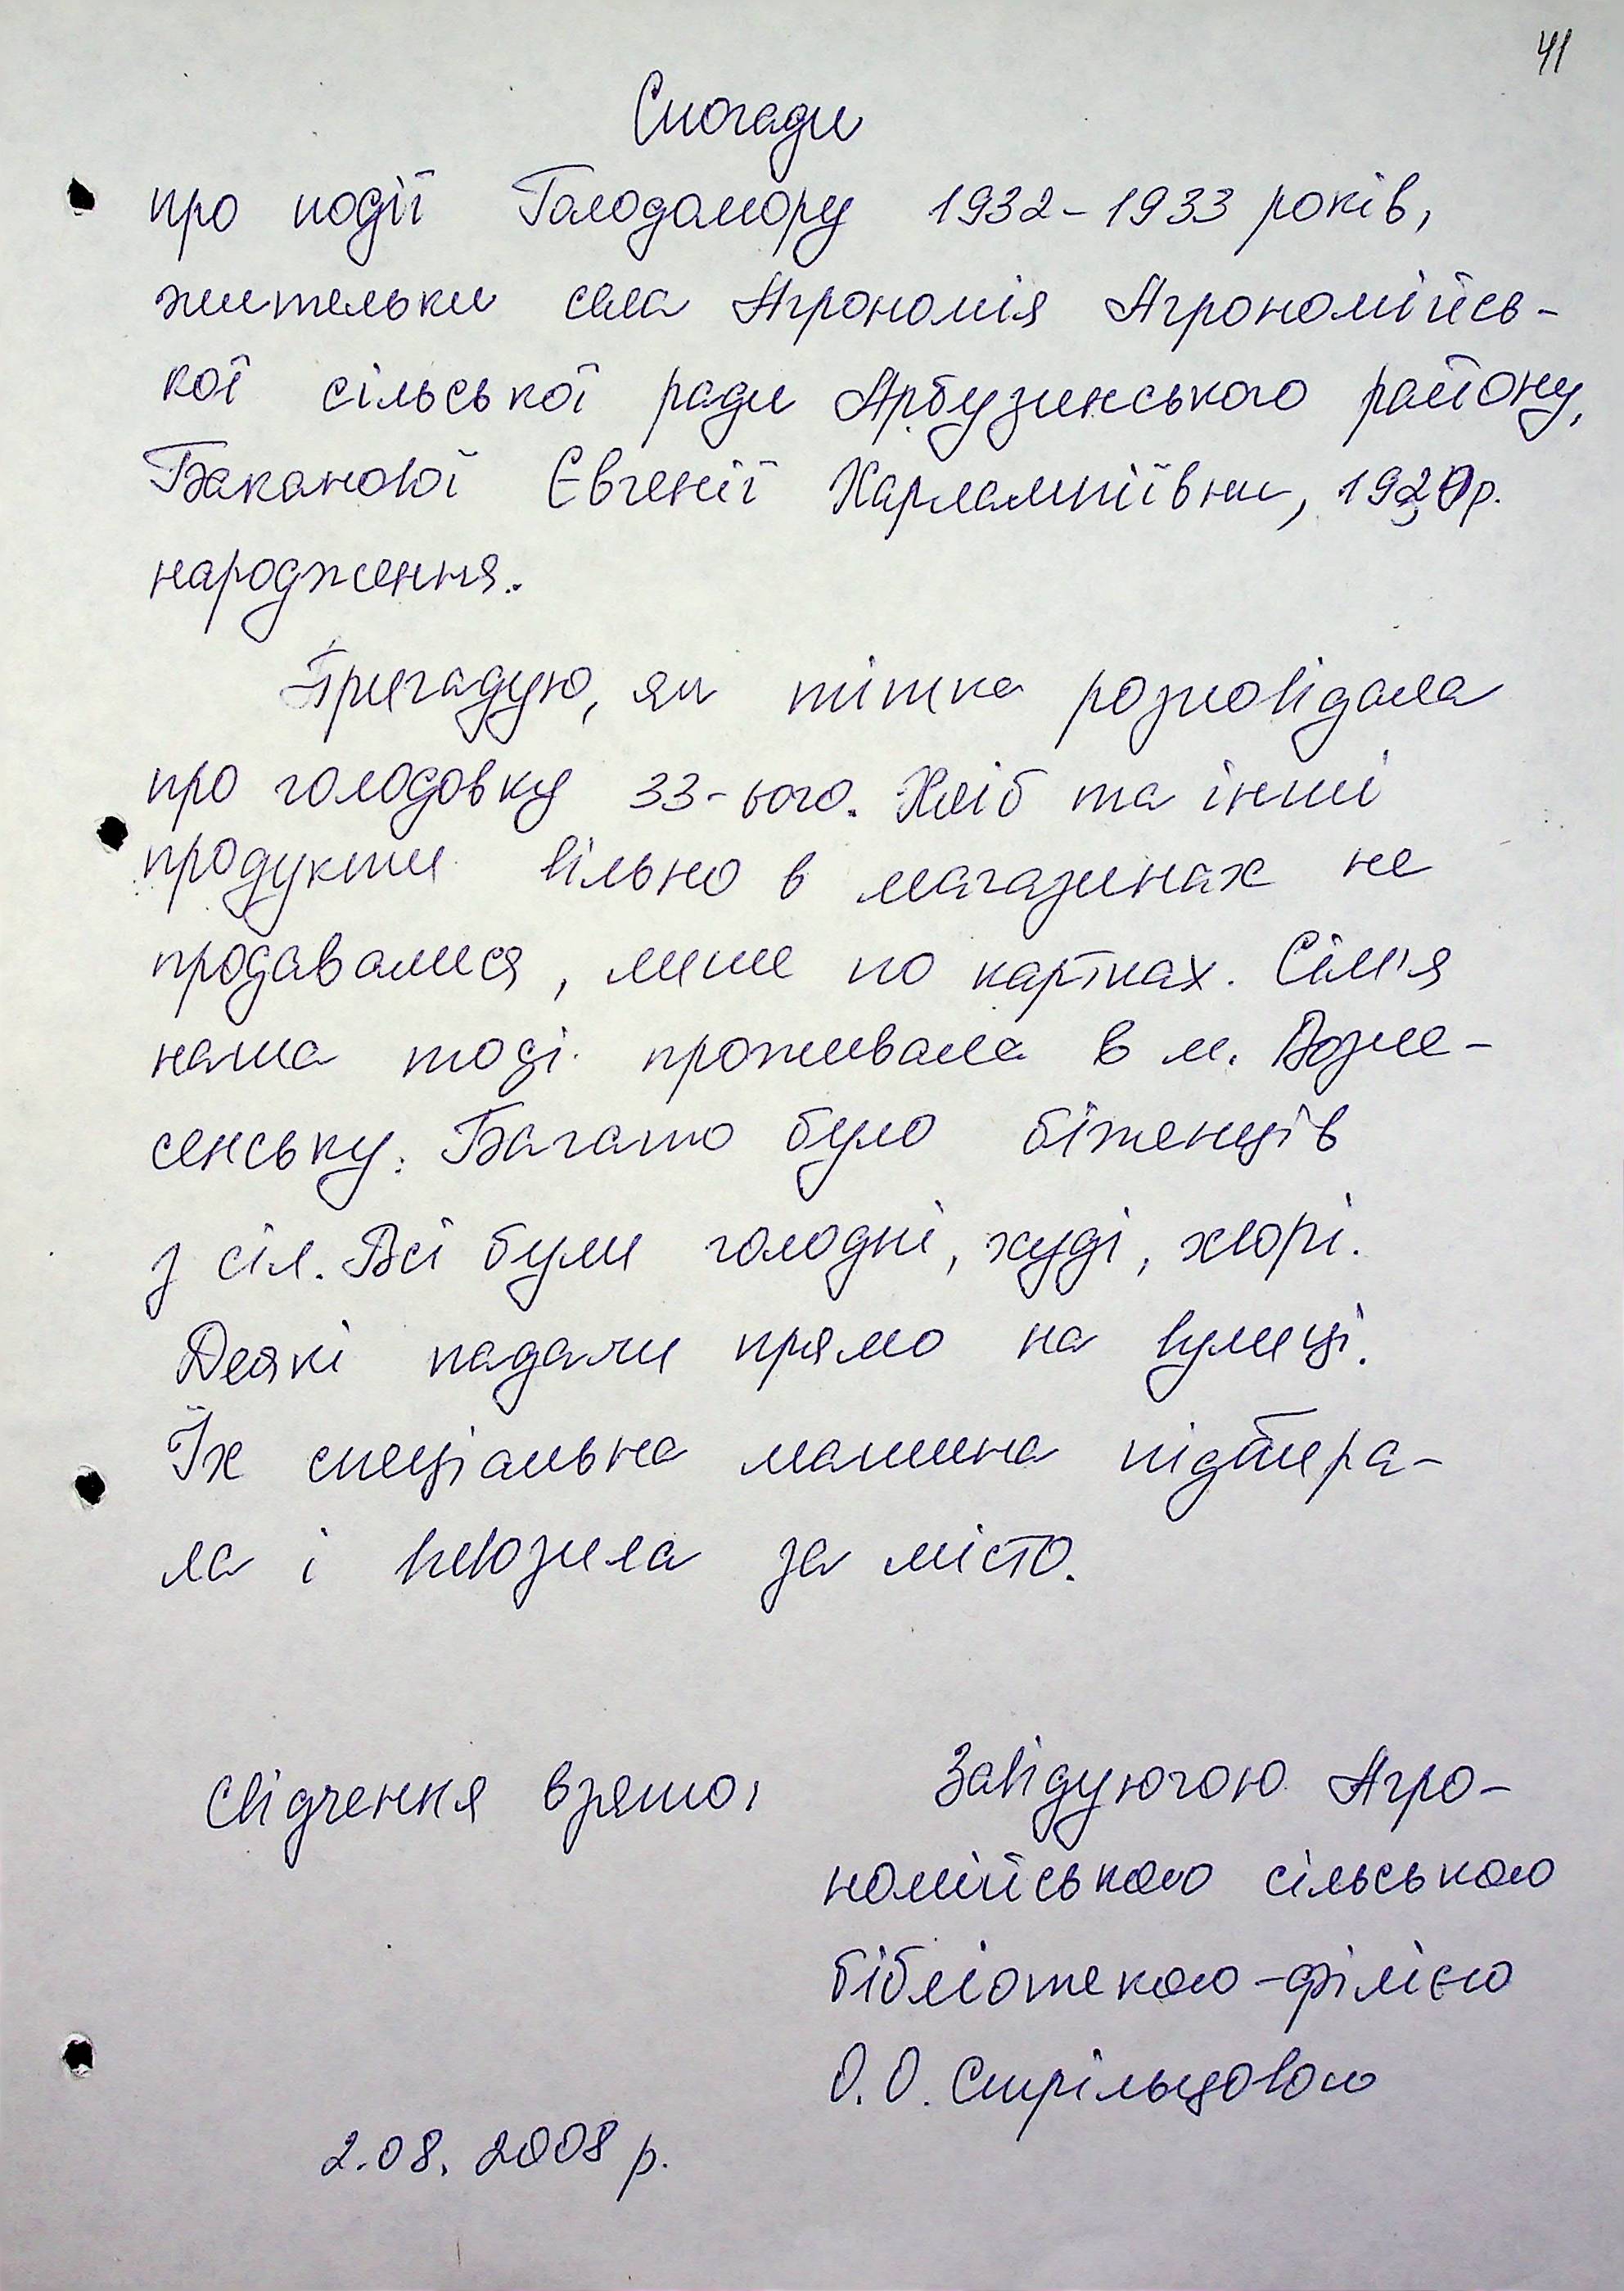 41
Спогади
про події Голодомору 1932-1933 років,
жительки села Агрономія Агрономійсь-
кої сільської ради Арбузинського району,
Баканової Євгенії Харлампіївни, р.
народження.
Пригадую, як тітка розповідала
про голодовку 33-ього. Хліб та інші
продукти вільно в магазинах не
продавалися, лише по картках. Сім'я
наша тоді проживала в м. Возне-
сенську. Багато було біженців
з сіл. Всі були голодні, худі, хворі.
Деякі падали прямо на вулиці.
Їх спеціальна машина підбира-
ла і вивозила за місто.
Свідчення взято, Завідуючою Агро-
номійською сільською
бібліотекою-філією
О.О. Стрільцовою
2.08.2008 р.